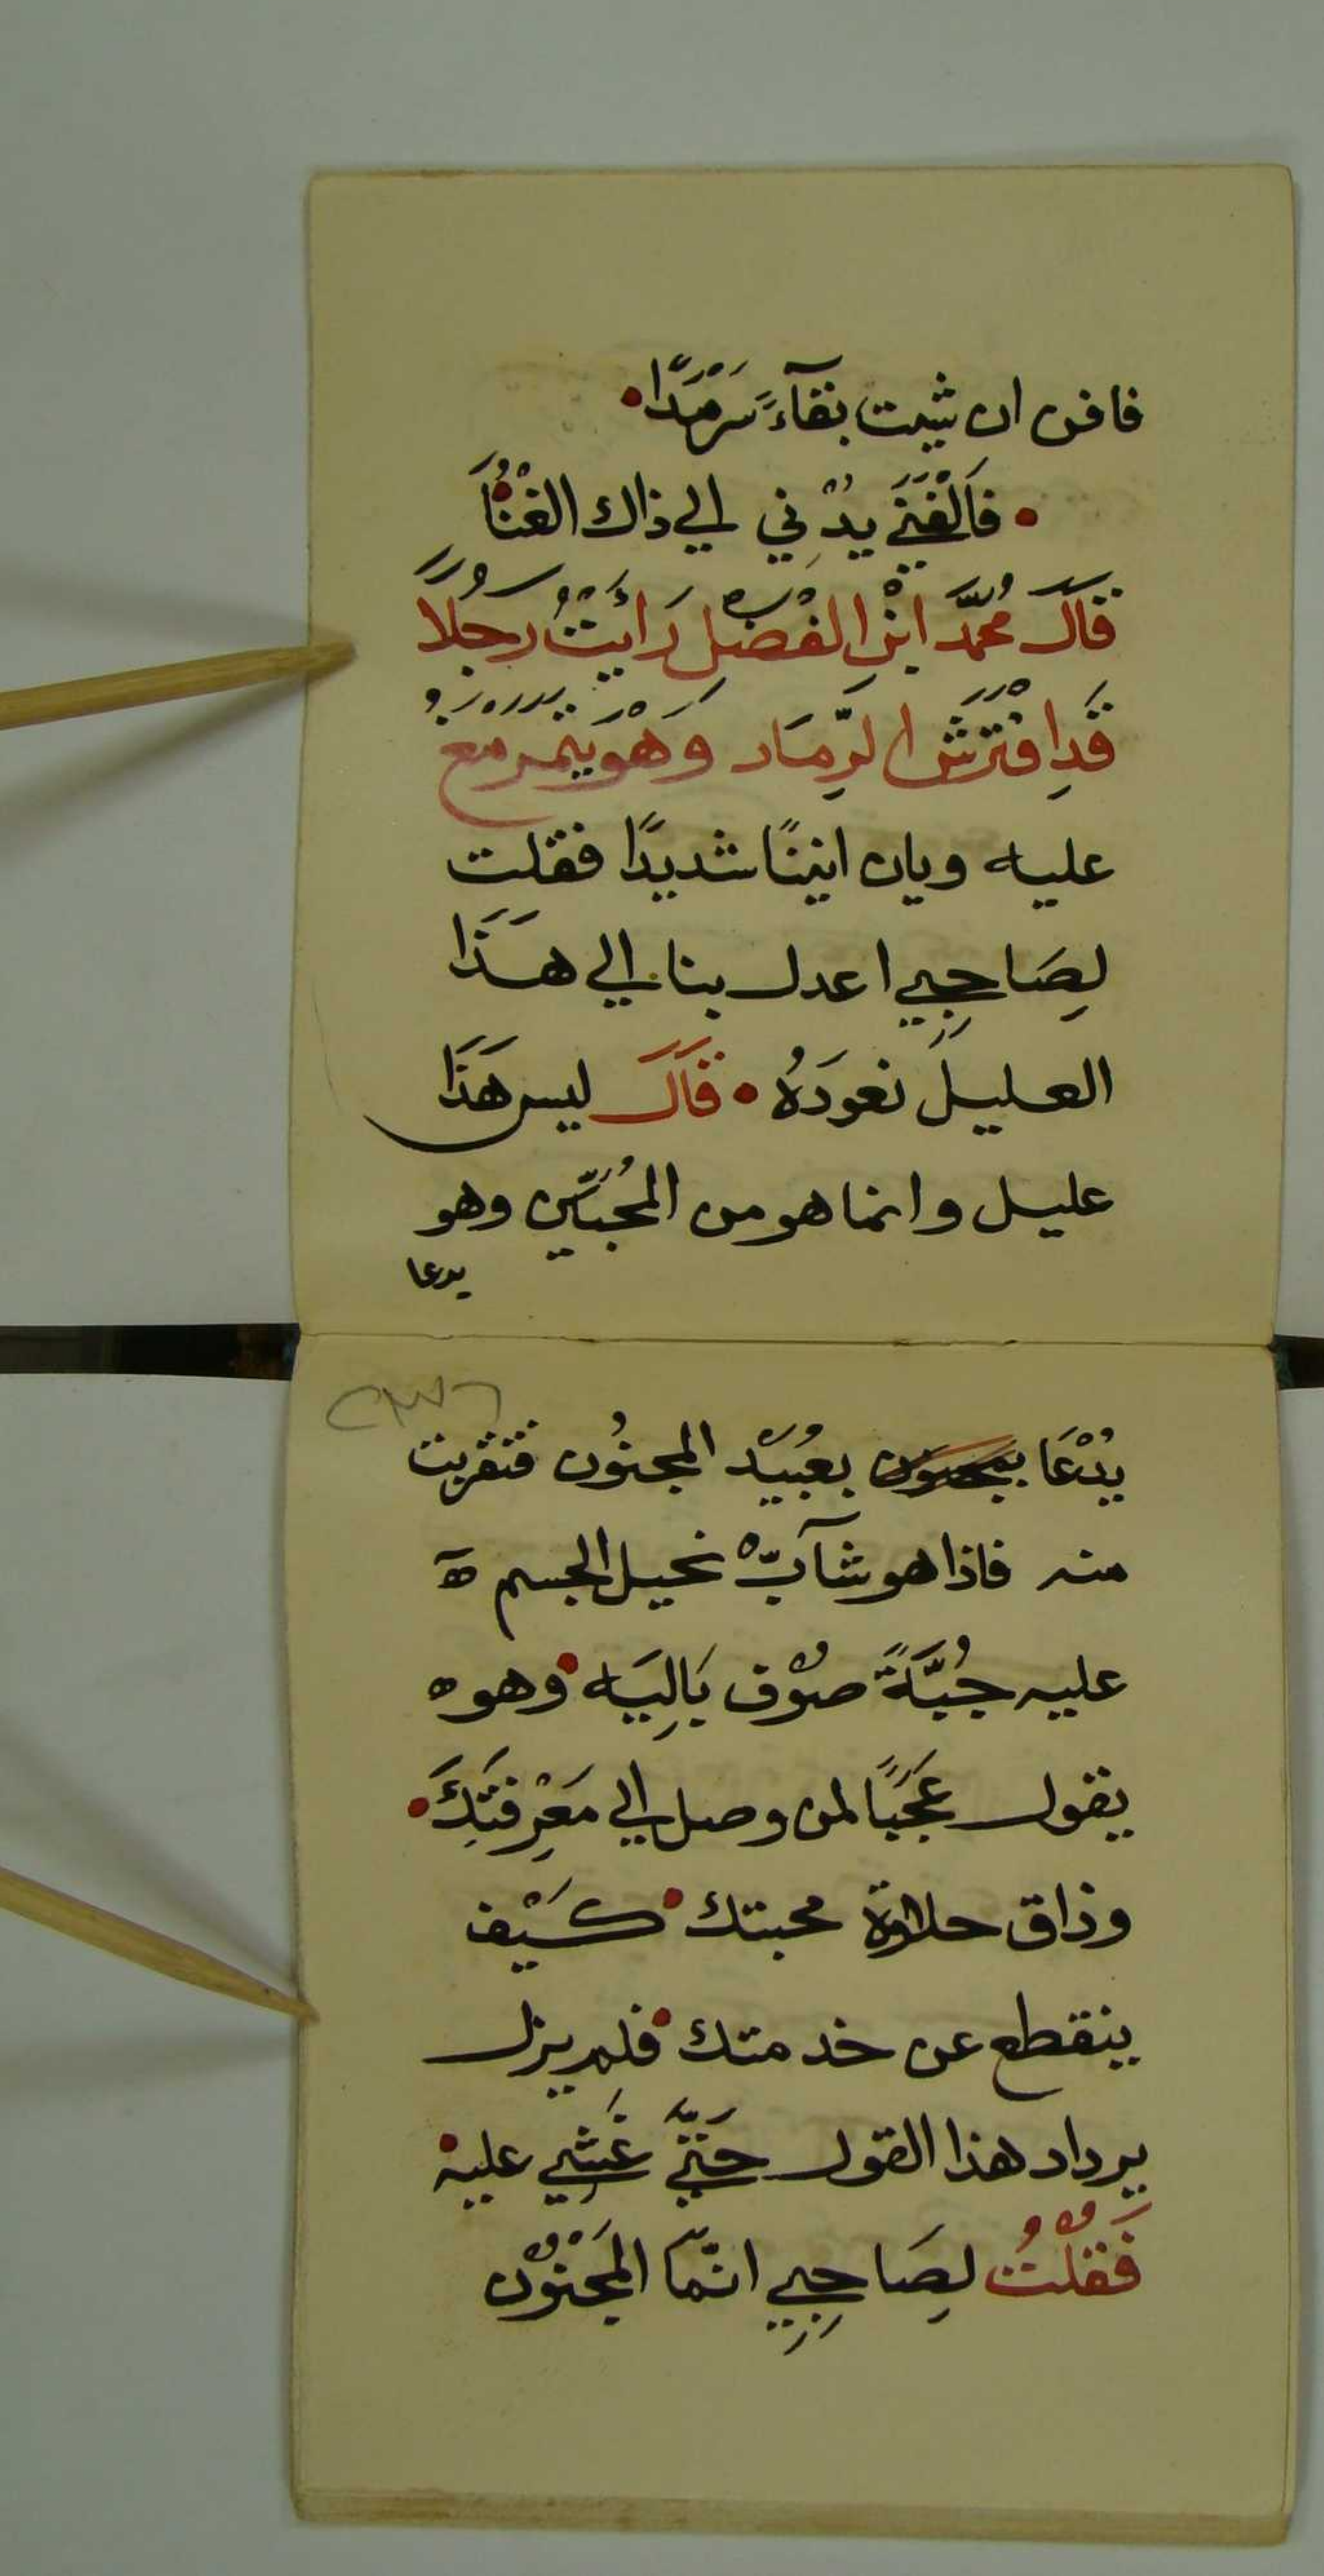 فافن ان شيت بقآءً سَرْمَدًا
فَالْفَنَي يدْني الي ذاك الغْنُاَ
قَالَ محُمَّد ابْنِ الفْضِل رَايَتْ رَجُلًا
قَدِ افْتَرَشَ الرِّمَاد وَهْوَ يَتَمَرَمَغُ
عليه ويان انينًا شديدًا فقلت
لِصَاحِبِي اعدل بنا الي هَذَا
العليل نعودَهُ قَالَ ليس هَذَا
عليل وانما هو من المُحبّين وهو
يدعا
يُدْعَا بعُبَيْد المجنُون فتقربت
منه فاذا هو شآبّ نحيل الجسم ه
عليه جُبَّةً صوْف بَالِيَه وهو ه
يقول عَجَبًا لمن وصل الي مَعْرِفَتِكَ
وذاق حلاوة محبتك كَيْف
ينقطع عن خدمتك فلم يزل
يرداد هذا القول حَتَّي غَشي عليه
فَقلْتُ لِصَاحِبِي انمّا المَجْنوْن